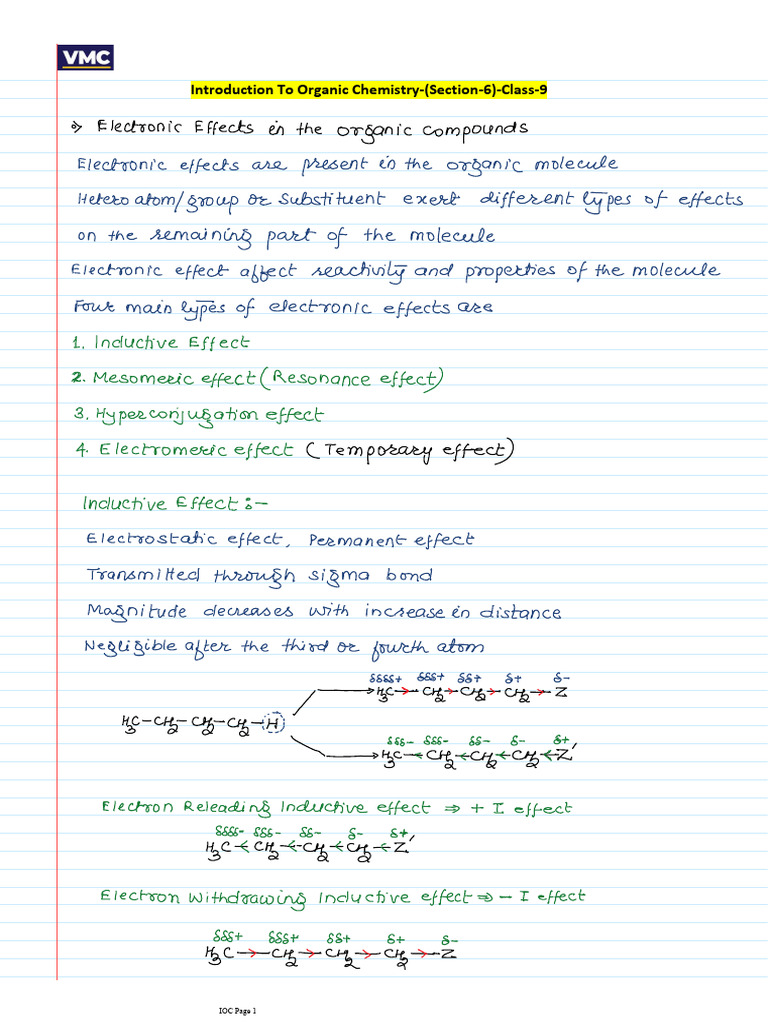 VMC
Introduction To Organic Chemistry-(Section-6)-Class-9
⇒ Electronic Effects in the organic compounds
Electronic effects are present in the organic molecule
Hetero atom/group or Substituent exert different types of effects
on the remaining part of the molecule
Electronic effect affect reactivity and properties of the molecule
Four main types of electronic effects are
1. Inductive Effect
2. Mesomeric effect (Resonance effect)
3. Hyperconjugation effect
4. Electromeric effect (Temporary effect)
Inductive Effect :-
Electrostatic effect, Permanent effect
Transmitted through sigma bond
Magnitude decreases with increase in distance
Negligible after the third or fourth atom
δδδδ+ δδδ+ δδ+ δ+ δ-
H3C→CH2→CH2→CH2→Z
H3C-CH2-CH2-CH2-H
δδδ- δδδ- δδ- δ- δ+
H3C←CH2←CH2←CH2←Z'
Electron Releading Inductive effect ⇒ + I effect
δδδδ- δδδ- δδ- δ- δ+
H3C←CH2←CH2←CH2←Z'
Electron Withdrawing Inductive effect ⇒ - I effect
δδδ+ δδδ+ δδ+ δ+ δ-
H3C→CH2→CH2→CH2→Z
IOC Page 1